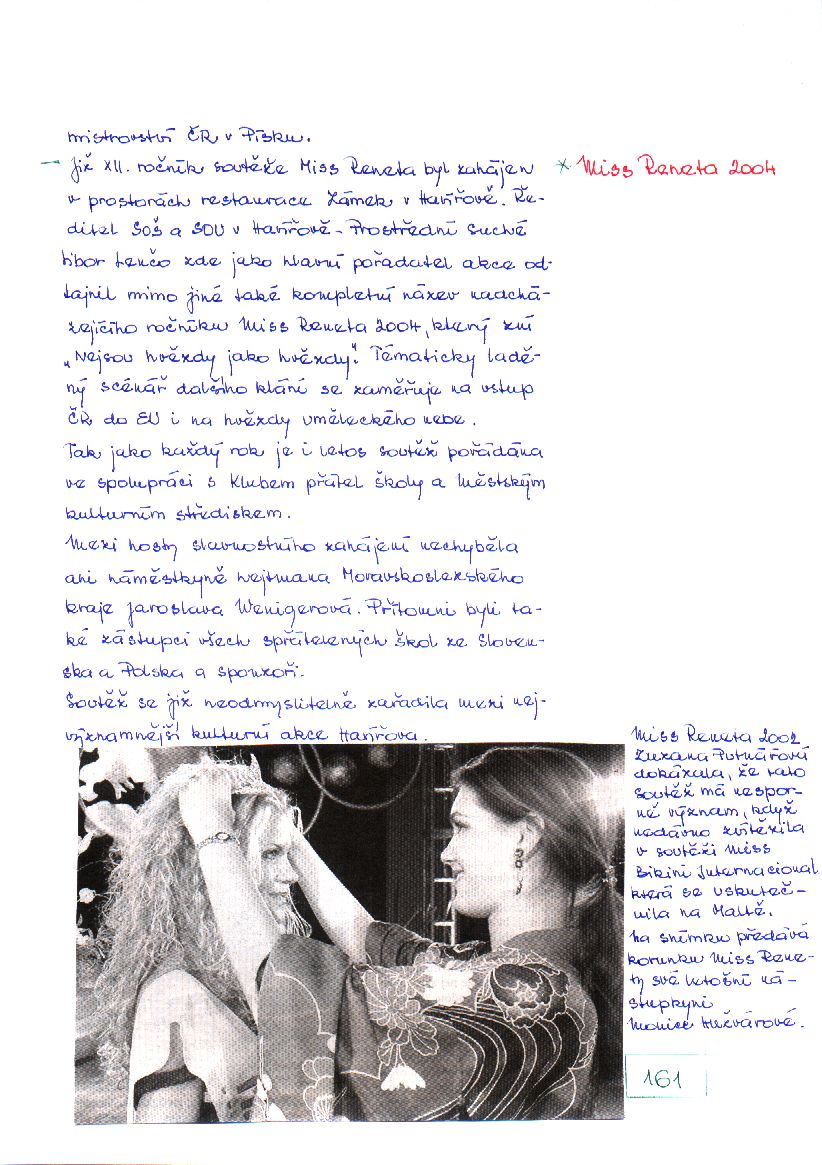 mistrovství ČR v Písku.
– Již XII. ročník soutěže Miss Reneta byl zahájen
* Miss Reneta 2004
v prostorách restaurace Zámek v Havířově. Ře-
ditel SOŠ a SOU v Havířově - Prostřední Suché
Tibor Lenčo zde jako hlavní pořadatel akce od-
tajnil mimo jiné také kompletní název nadchá-
zejícího ročníku Miss Reneta 2004, který zní
„Nejsou hvězdy jako hvězdy". Tématicky ladě-
ný scénář dalšího klání se zaměřuje na vstup
ČR do EU i na hvězdy uměleckého nebe.
Tak jako každý rok je i letos soutěž pořádána
ve spolupráci s Klubem přátel školy a Městským
kulturním střediskem.
Mezi hosty slavnostního zahájení nechyběla
ani náměstkyně hejtmana Moravskoslezského
kraje Jaroslava Wenigerová. Přítomni byli ta-
ké zástupci všech spřátelených škol ze Sloven-
ska a Polska a sponzoři.
Soutěž se již neodmyslitelně zařadila mezi nej-
významnější kulturní akce Havířova.
Miss Reneta 2002
Zuzana Putnářová
dokázala, že tato
soutěž má nespor-
ně význam, když
nedávno zvítězila
v soutěži Miss
Bikini Internacional
která se uskuteč-
nila na Maltě.
Na snímku předává
korunku Miss Rene-
ty své letošní ná-
stupkyni
Monice Hužvárové.
161